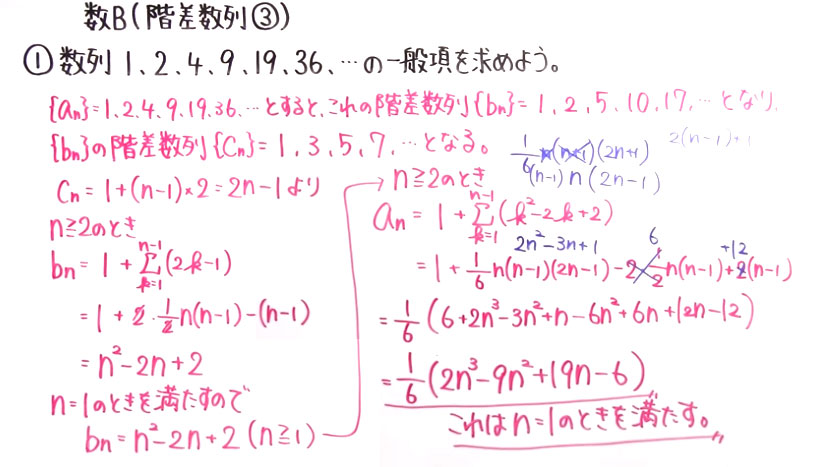 数B(階差数列③)
① 数列 1、2、4、9、19、36、…の一般項を求めよう。
{an}=1、2、4、9、19、36、…とすると、これの階差数列{bn}=1、2、5、10、17、…となり、
{bn}の階差数列{Cn}=1、3、5、7、…となる。
Cn=1+(n-1)×2=2n-1より
n≧2のとき
bn=1+Σ[k=1→n-1](2k-1)
=1+2・1/2n(n-1)-(n-1)
=n²-2n+2
n=1のときを満たすので
bn=n²-2n+2(n≧1)
1/6n(n+1)(2n+1)
2(n-1)+1
(n-1)n(2n-1)
n≧2のとき
an=1+Σ[k=1→n-1](k²-2k+2)
2n²-3n+1
6
+12
=1+1/6n(n-1)(2n-1)-2×1/2n(n-1)+2(n-1)
=1/6(6+2n³-3n²+n-6n²+6n+12n-12)
=1/6(2n³-9n²+19n-6)
これはn=1のときを満たす。